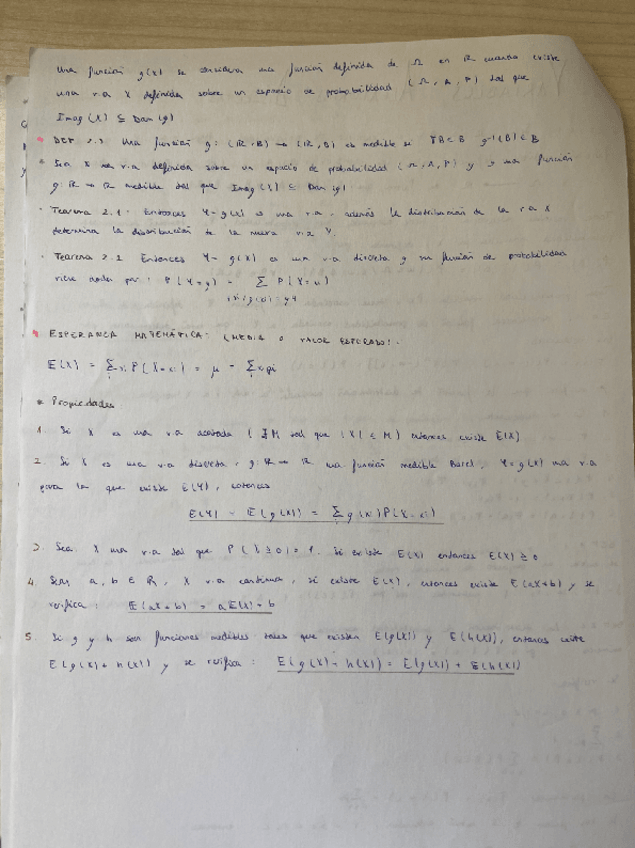 Una función g(x) se considera una función definida de Ω en ℝ cuando existe
una v.a X definida sobre un espacio de probabilidad (Ω, A, P) tal que
Imag (X) ⊆ Dom (g)
* DEF 2.3 Una función g: (ℝ, B) → (ℝ, B) es medible si ∀B ∈ B g⁻¹(B) ∈ B
* Sea X una v.a definida sobre un espacio de probabilidad (Ω, A, P) y g una función
g: ℝ → ℝ medible tal que Imag (X) ⊆ Dom (g)
· Teorema 2.1: Entonces Y = g(X) es una v.a. además la distribución de la v.a X
determina la distribución de la nueva v.a Y.
· Teorema 2.2 Entonces Y = g(X) es una v.a discreta y su función de probabilidad
viene dada por: P(Y=y) = Σ P(X=x)
{x: g(x) = y}
* ESPERANZA MATEMÁTICA: (MEDIA O VALOR ESPERADO).
E(X) = Σ xi P(X=xi) = μ = Σ xi pi
* Propiedades
1. Si X es una v.a acotada (∃M tal que |X| ≤ M) entonces existe E(X)
2. Si X es una v.a discreta, g: ℝ → ℝ una función medible Borel, Y = g(X) una v.a
para la que existe E(Y), entonces
E(Y) = E(g(X)) = Σ g(xi) P(X=xi)
3. Sea X una v.a tal que P(X ≥ 0) = 1. Si existe E(X) entonces E(X) ≥ 0
4. Sean a, b ∈ ℝ, X v.a continua, si existe E(X), entonces existe E(aX+b) y se
verifica: E(aX + b) = aE(X) + b
5. Si g y h son funciones medibles tales que existen E(g(X)) y E(h(X)), entonces existe
E(g(X) + h(X)) y se verifica: E(g(X) + h(X)) = E(g(X)) + E(h(X))